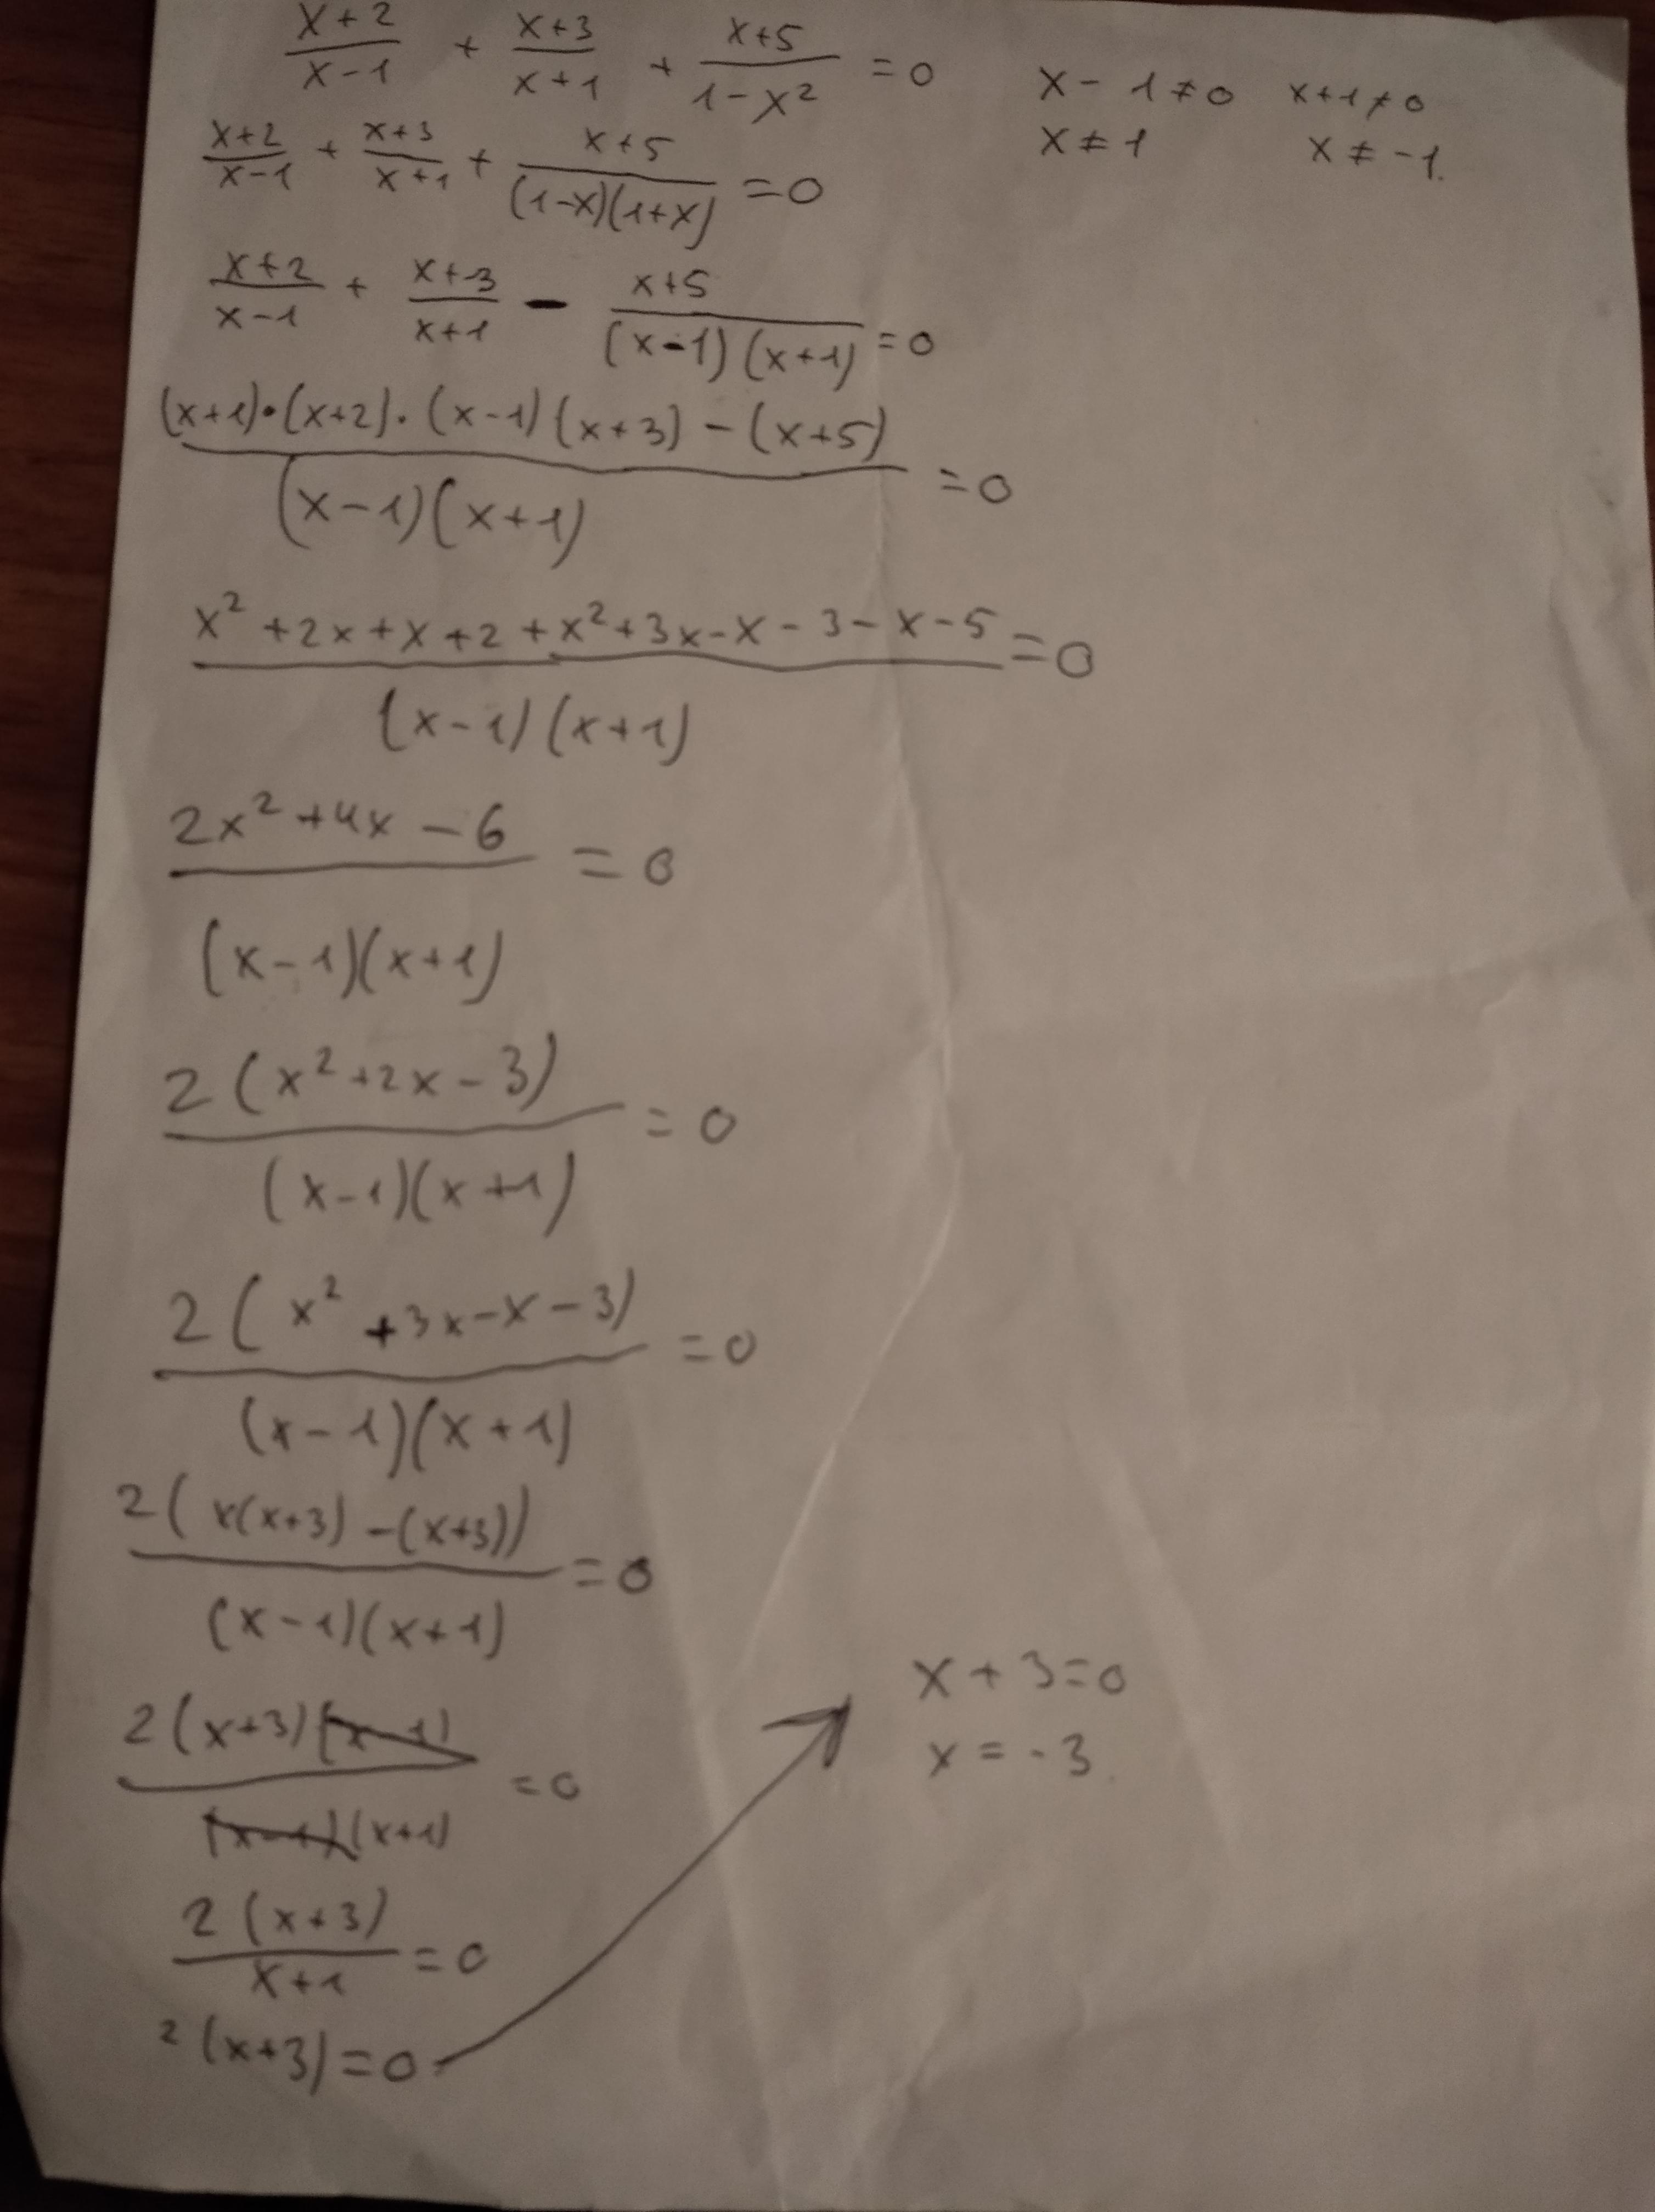 (x+2)/(x-1) + (x+3)/(x+1) + (x+5)/(1-x²) = 0   x-1≠0   x+1≠0
x≠1   x≠-1.
(x+2)/(x-1) + (x+3)/(x+1) + (x+5)/((1-x)(1+x)) = 0
(x+2)/(x-1) + (x+3)/(x+1) - (x+5)/((x-1)(x+1)) = 0
((x+1)·(x+2)·(x-1)(x+3)-(x+5))/((x-1)(x+1)) = 0
(x²+2x+x+2+x²+3x-x-3-x-5)/((x-1)(x+1)) = 0
(2x²+4x-6)/((x-1)(x+1)) = 0
2(x²+2x-3)/((x-1)(x+1)) = 0
2(x²+3x-x-3)/((x-1)(x+1)) = 0
2(x(x+3)-(x+3))/((x-1)(x+1)) = 0
2(x+3)(x-1)/((x-1)(x+1)) = 0
2(x+3)/(x+1) = 0
2(x+3)=0
x+3=0
x=-3.